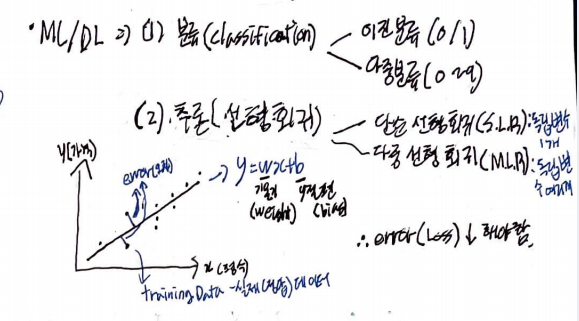 • ML/DL ⇒ (1) 분류(classification)
이진분류(0/1)
다중분류(0~9)
(2). 추론(선형회귀)
단순 선형회귀(S.L.R): 독립변수 1개
다중 선형 회귀(MLR): 독립변수 여러개
y(가격)
error(오차)
→ y=wx+b
기울기 y절편
(weight) (bias)
∴ error(Loss)↓ 해야함.
x(평수)
training Data - 실제(정답)데이터